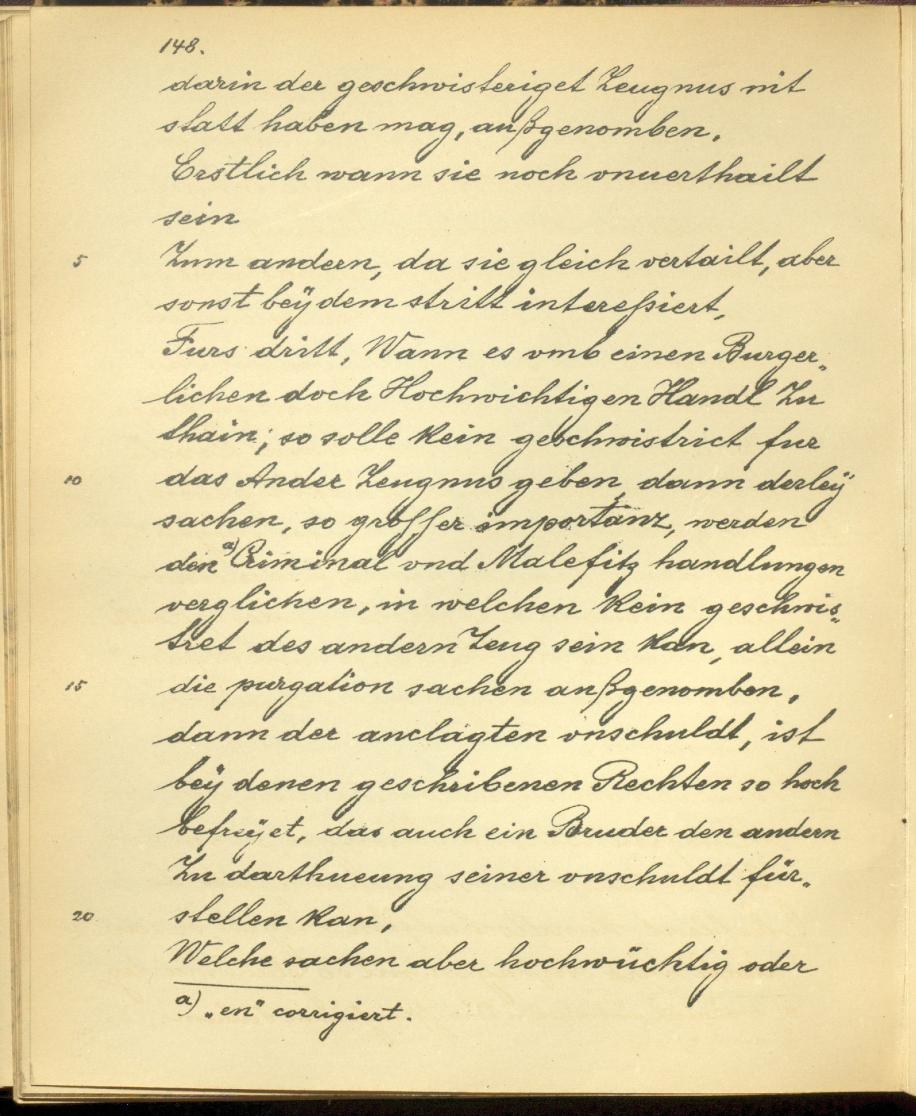 148.
darin der geschwisteriget Zeugnus nit
statt haben mag, außgenomben,
Erstlich wann sie noch vnuerthailt
sein
5 Zum andern, da sie gleich vertailt, aber
sonst beÿ dem stritt intereßiert,
Furs dritt, Wann es vmb einen Burger„
lichen doch Hochwichtigen Handl Zu
thain; so solle kein geschwistrict fur
10 das Ander Zeugnus geben, dann derleÿ
sachen, so grosser importanz, werden
den a) Criminal vnd Malefitz handlungen
verglichen, in welchen kein geschwis„
tret des andern Zeug sein kan, allein
15 die purgation sachen außgenomben,
dann der anclagten vnschuldt, ist
beÿ denen geschribenen Rechten so hoch
befreÿet, das auch ein Bruder den andern
Zu darthueung seiner vnschuldt für„
20 stellen kan,
Welche sachen aber hochwüchtig oder
a) „en" corrigiert.